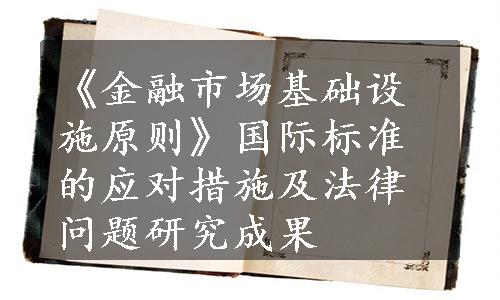 《金融市场基础设
施原则》国际标准
的应对措施及法律
问题研究成果